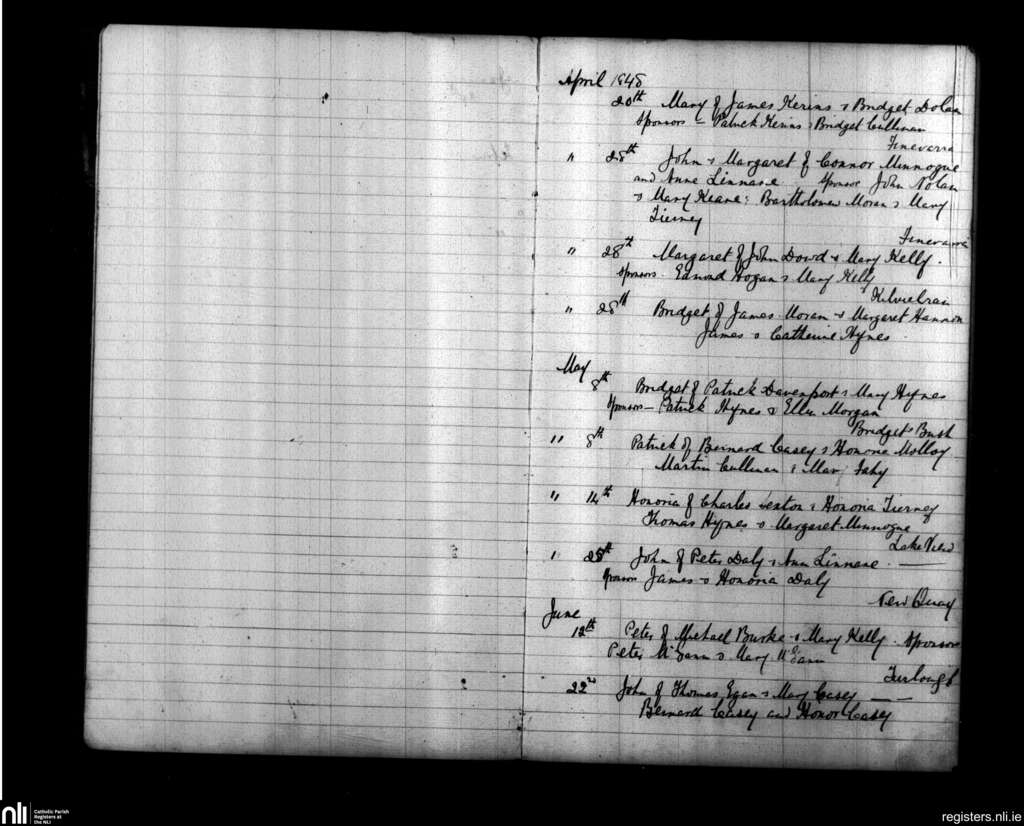 April 1848
20th Mary of James Kerins & Bridget Dolan
Sponsors - Patrick Kerins & Bridget Cullinan
Finevarra
" 28th John & Margaret of Connor Minnogue
and Anne Linnane Sponsor John Nolan
& Mary Keane: Bartholomew Moran & Mary
Tierney
Finevarra
" 28th Margaret of John Dowd & Mary Kelly.
Sponsors. Edmond Hogan & Mary Kelly
" 28th Bridget of James Moran & Margaret Hannon
James & Catherine Hynes
May
8th Bridget of Patrick Davenport & Mary Hynes
Sponsors - Patrick Hynes & Ellen Morgan
Bridget's Bush
" 8th Patrick of Bernard Casey & Honoria Molloy
Martin Cullinan & Mary Fahy
" 14th Honoria of Charles Sexton & Honoria Tierney
Thomas Hynes & Margaret Minnogue
Lake View
" 25th John of Peter Daly & Ann Linnane.
Sponsors James & Honoria Daly
New Quay
June
12th Peter of Michael Burke & Mary Kelly. Sponsors
Peter McGann & Mary McGann
Turlough
22nd John of Thomas Egan & Mary Casey
Bernard Casey and Honor Casey
nli
Catholic Parish
Registers at
the NLI
registers.nli.ie